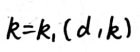 k=k₁(d,k)